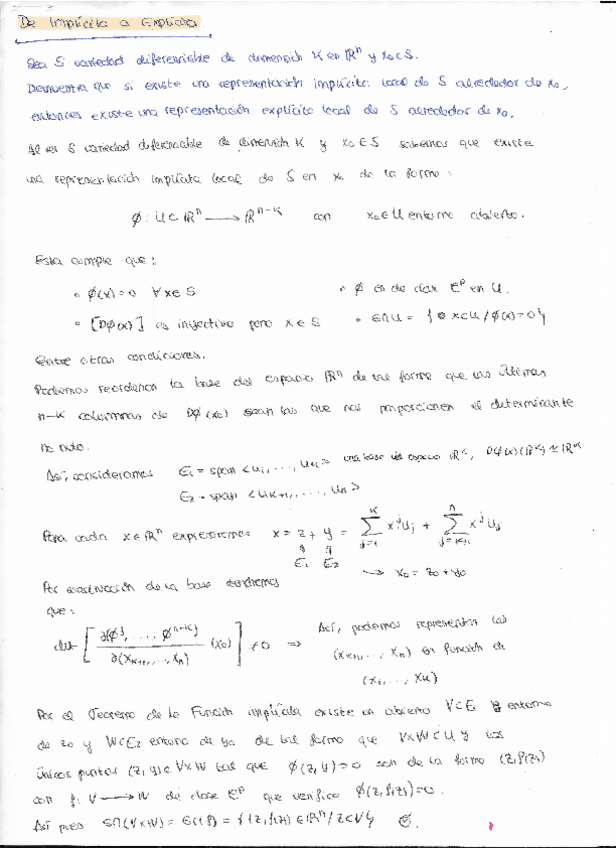 De Implícita a Explícita
Sea S variedad diferenciable de dimensión K en ℝⁿ y x₀∈S.
Demuestra que si existe una representación implícita local de S alrededor de x₀,
entonces existe una representación explícita local de S alrededor de x₀.
Al ser S variedad diferenciable de dimensión K y x₀∈S sabemos que existe
una representación implícita local de S en x₀ de la forma:
ϕ: U⊂ℝⁿ ⟶ ℝⁿ⁻ᴷ con x₀∈U entorno abierto.
Esta cumple que:
• ϕ(x)=0 ∀x∈S • ϕ es de clase Cᵖ en U.
• [Dϕ(x)] es inyectiva para x∈S • S∩U = { x∈U / ϕ(x)=0}
Entre otras condiciones.
Podemos reordenar la base del espacio ℝⁿ de tal forma que las últimas
n-K columnas de Dϕ(x₀) sean las que nos proporcionen el determinante
no nulo.
Así, consideramos E₁ = span <u₁, ..., uₖ> una base del espacio ℝᴷ, Dϕ(x)(ℝᴷ) ≃ ℝᴷ
E₂ = span <uₖ₊₁, ..., uₙ>
Para cada x∈ℝⁿ expresaremos x = z + y = ∑ⱼ₌₁ᴷ xʲuⱼ + ∑ⱼ₌ₖ₊₁ⁿ xʲuⱼ
E₁ E₂ → x₀ = z₀ + y₀
Por construcción de la base tendremos
que:
det [ ∂(ϕ¹, ..., ϕⁿ⁻ᴷ) / ∂(xₖ₊₁, ..., xₙ) (x₀) ] ≠ 0 ⇒ Así, podemos representar las
(xₖ₊₁, ..., xₙ) en función de
(x₁, ..., xₖ)
Por el Teorema de la Función implícita existe un abierto V⊂E₁ entorno
de z₀ y W⊂E₂ entorno de y₀ de tal forma que V×W⊂U y los
únicos puntos (z, y)∈V×W tal que ϕ(z, y)=0 son de la forma (z, f(z))
con f: V ⟶ W de clase Cᵖ que verifica ϕ(z, f(z))=0.
Así pues S∩(V×W) = G(f) = {(z, f(z))∈ℝⁿ / z∈V}